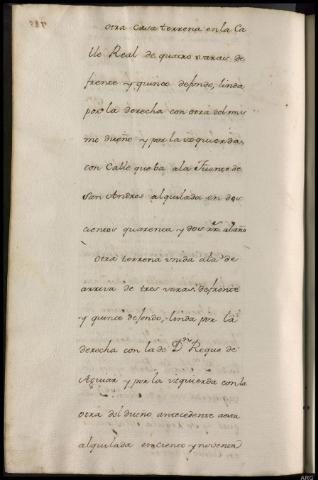 otra casa terrena en la Ca
lle Real de quatro varas de
frente y quince defondo, linda
por la derecha con otra del mis
mo dueño y por la yzquierda
con Calle que ba ala Fuente de
San Andres alquilada en dos
cientos quarenta y dos rr. alaño
Otra terrena vnida ala de
arriva de tres varas defrente
y quince defondo, linda por la
derecha con la de Dn. Roque de
Aguiar y por la yzquierda con la
otra del dueño antecedente
alquilada en ciento y noventa
ARG